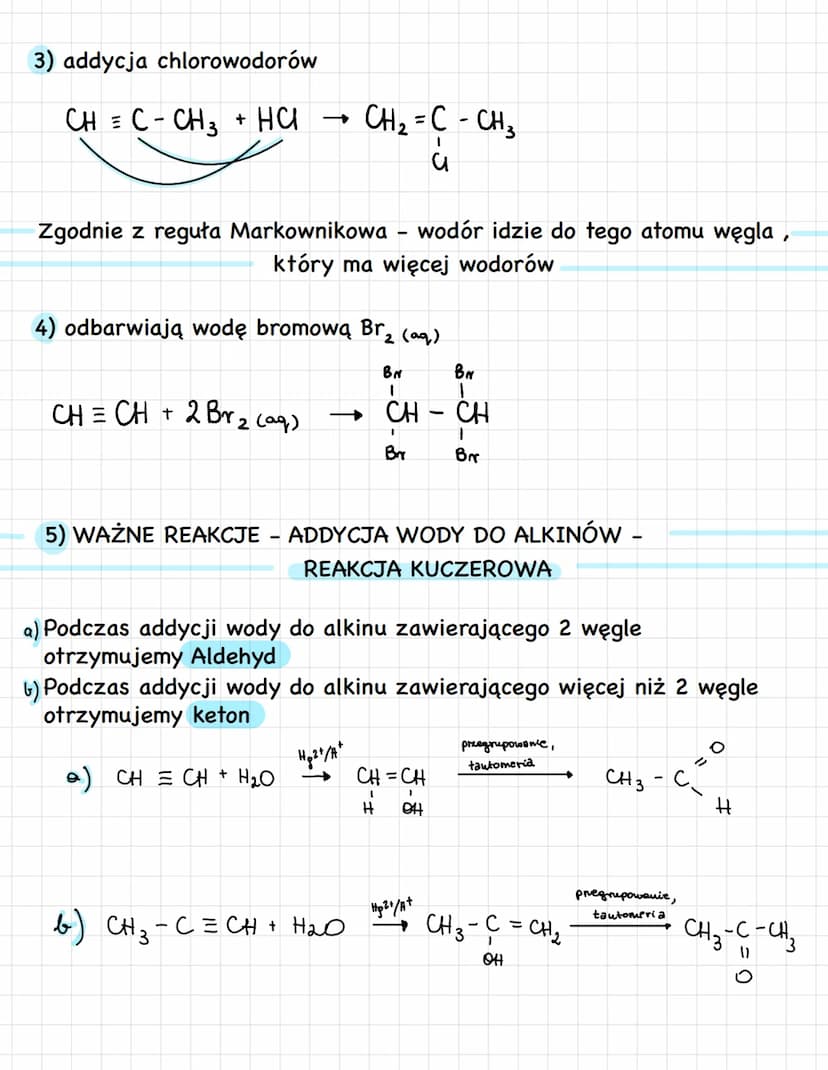 3) addycja chlorowodorów
CH ≡ C - CH₃ + HCl → CH₂ = C - CH₃
Cl
Zgodnie z reguła Markownikowa - wodór idzie do tego atomu węgla ,
który ma więcej wodorów
4) odbarwiają wodę bromową Br₂ (aq)
Br Br
CH ≡ CH + 2 Br₂ (aq) → CH - CH
Br Br
5) WAŻNE REAKCJE - ADDYCJA WODY DO ALKINÓW -
REAKCJA KUCZEROWA
a) Podczas addycji wody do alkinu zawierającego 2 węgle
otrzymujemy Aldehyd
b) Podczas addycji wody do alkinu zawierającego więcej niż 2 węgle
otrzymujemy keton
Hg²⁺/H⁺ przegrupowanie, O
tautomeria
a) CH ≡ CH + H₂O → CH = CH → CH₃ - C
H OH H
Hg²⁺/H⁺ przegrupowanie,
tautomeria
b) CH₃ - C ≡ CH + H₂O → CH₃ - C = CH₂ → CH₃ - C - CH₃
OH O